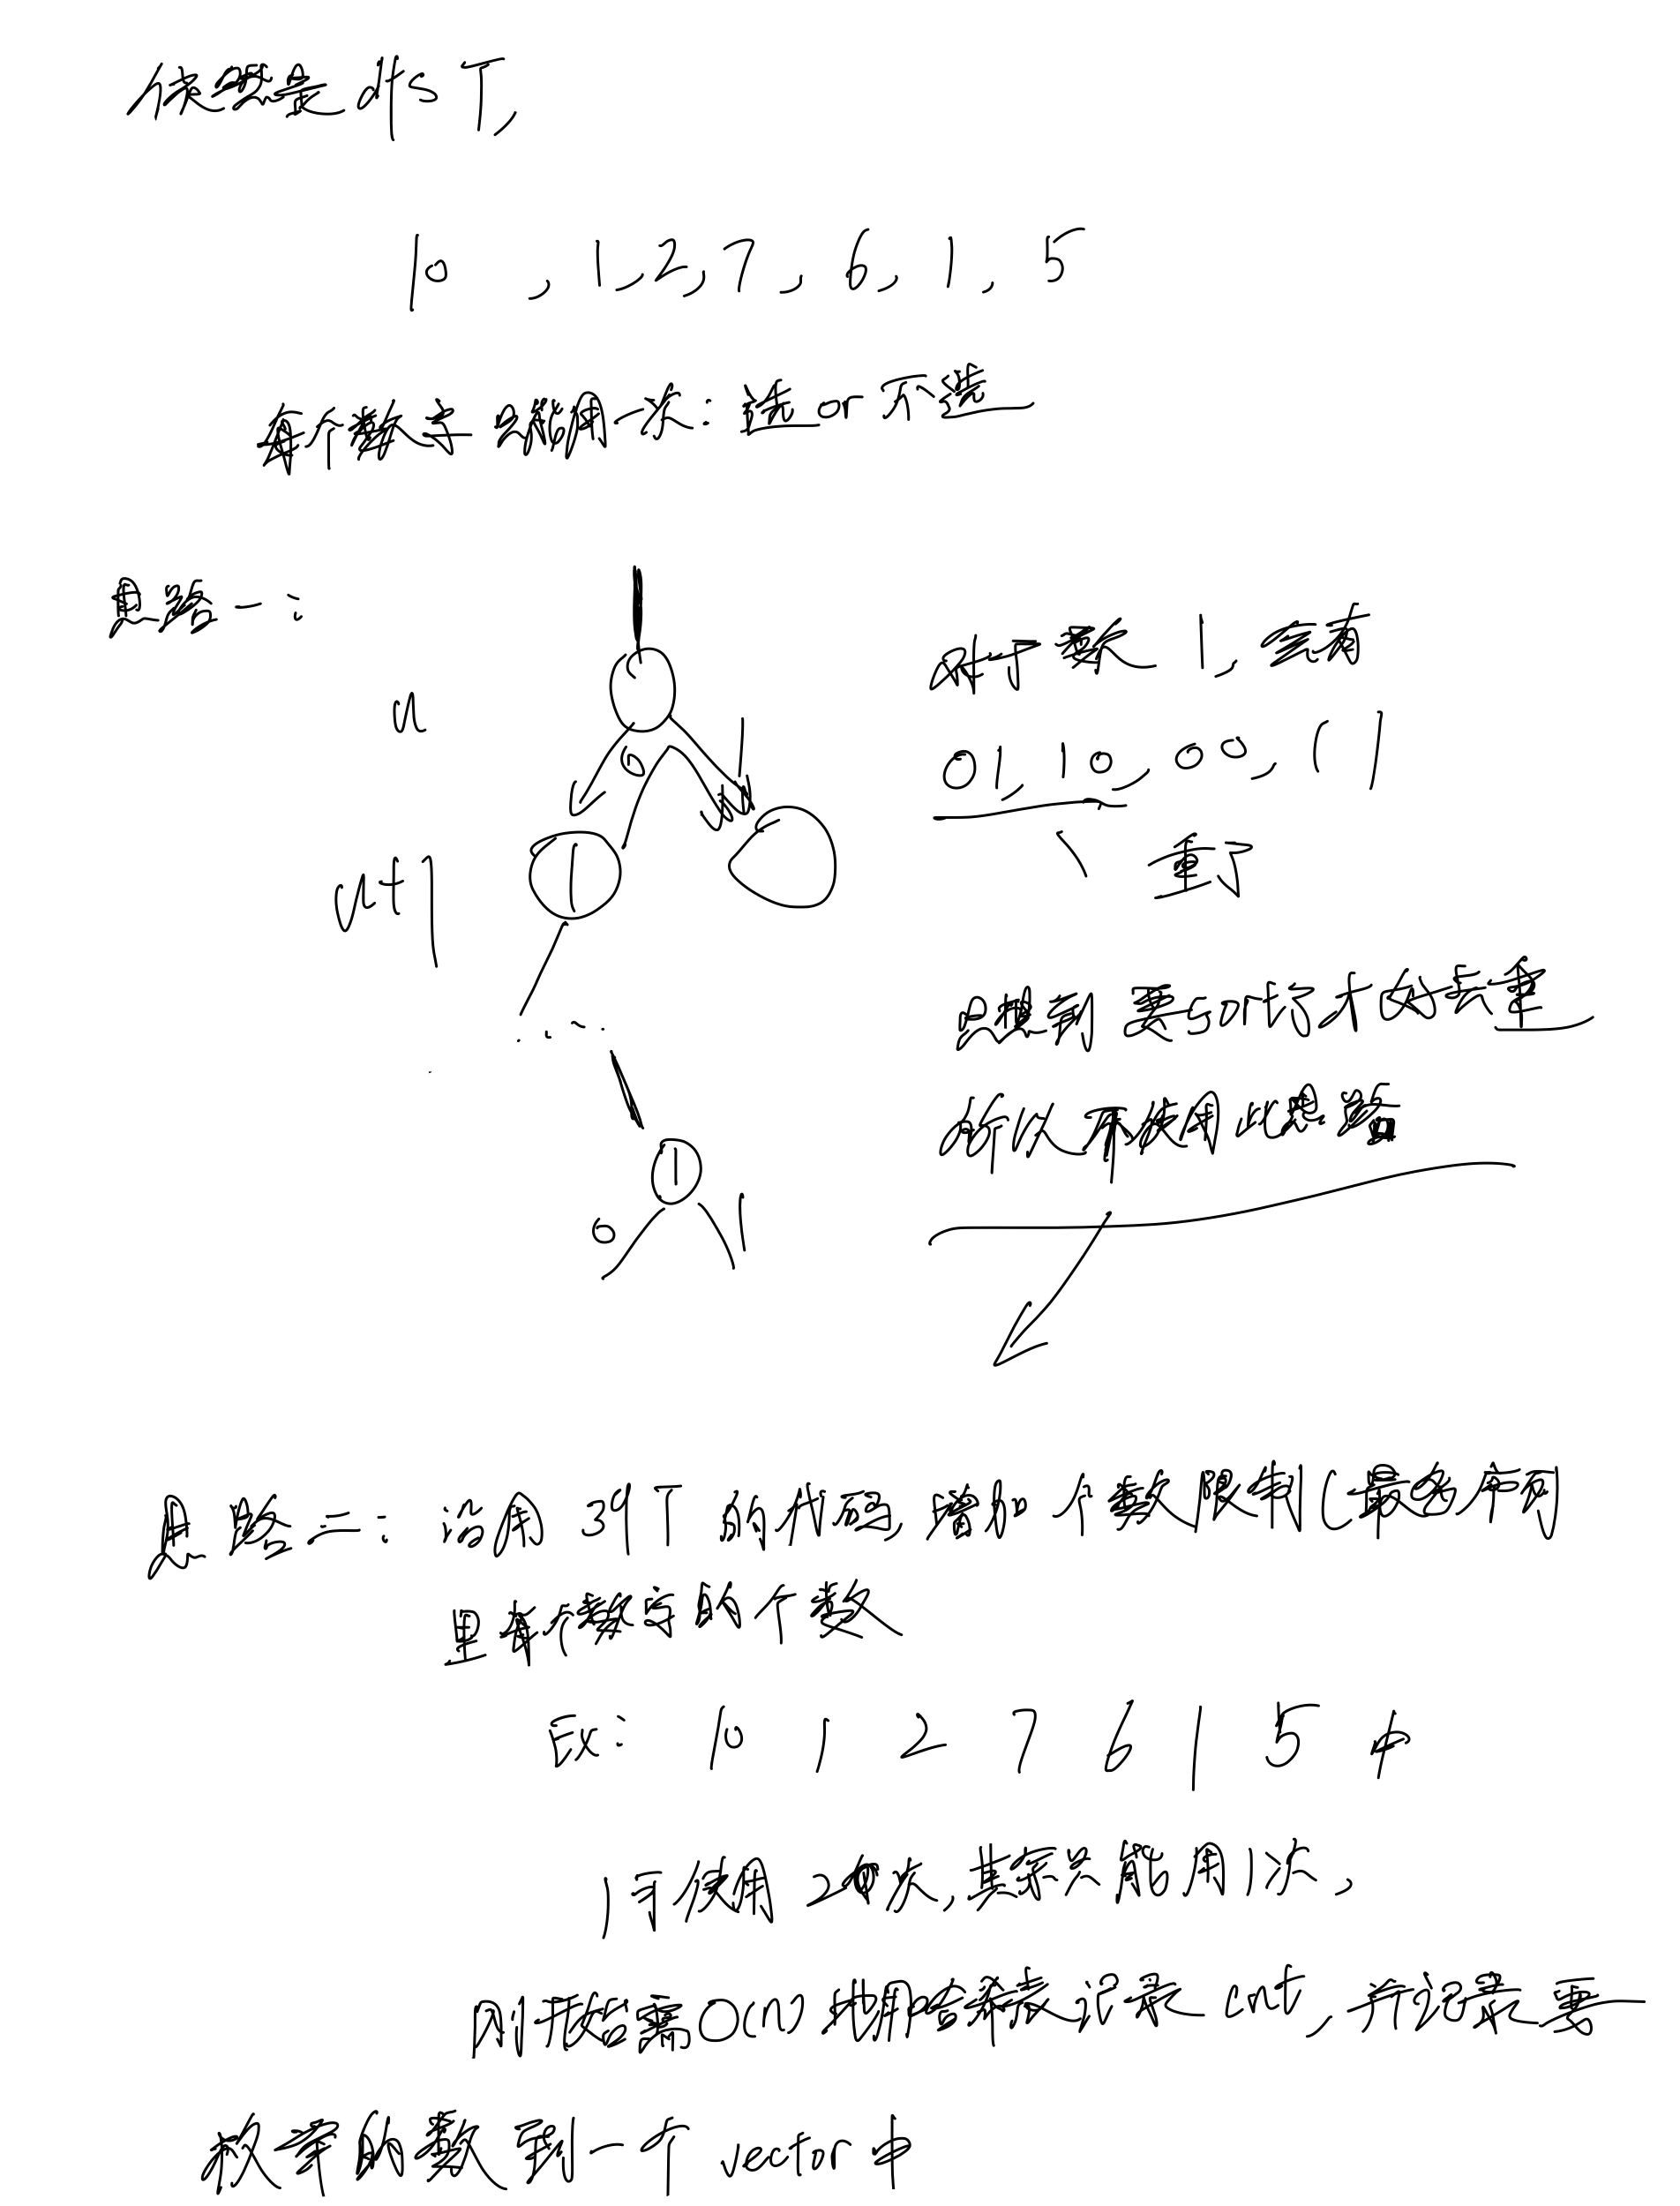 依然是 dfs T,
10 , 1, 2, 7, 6, 1, 5
每个数字只能用一次: 选 or 不选
思路一:
对于数 1, 会有
u
0 1
01, 10, 00, 11
u+1
1
重了
只想到要sort了才好去重
所以不使用此思路
1
0 1
思路二: 沿用 39T 的代码, 增加个数限制(最多序列
里每个数字的个数
Ex: 10 1 2 7 6 1 5 中
1可使用 2次, 其余只能用1次,
则开始需O(n)地用哈希表记录 cnt, 并记录要
枚举的数到一个 vector中